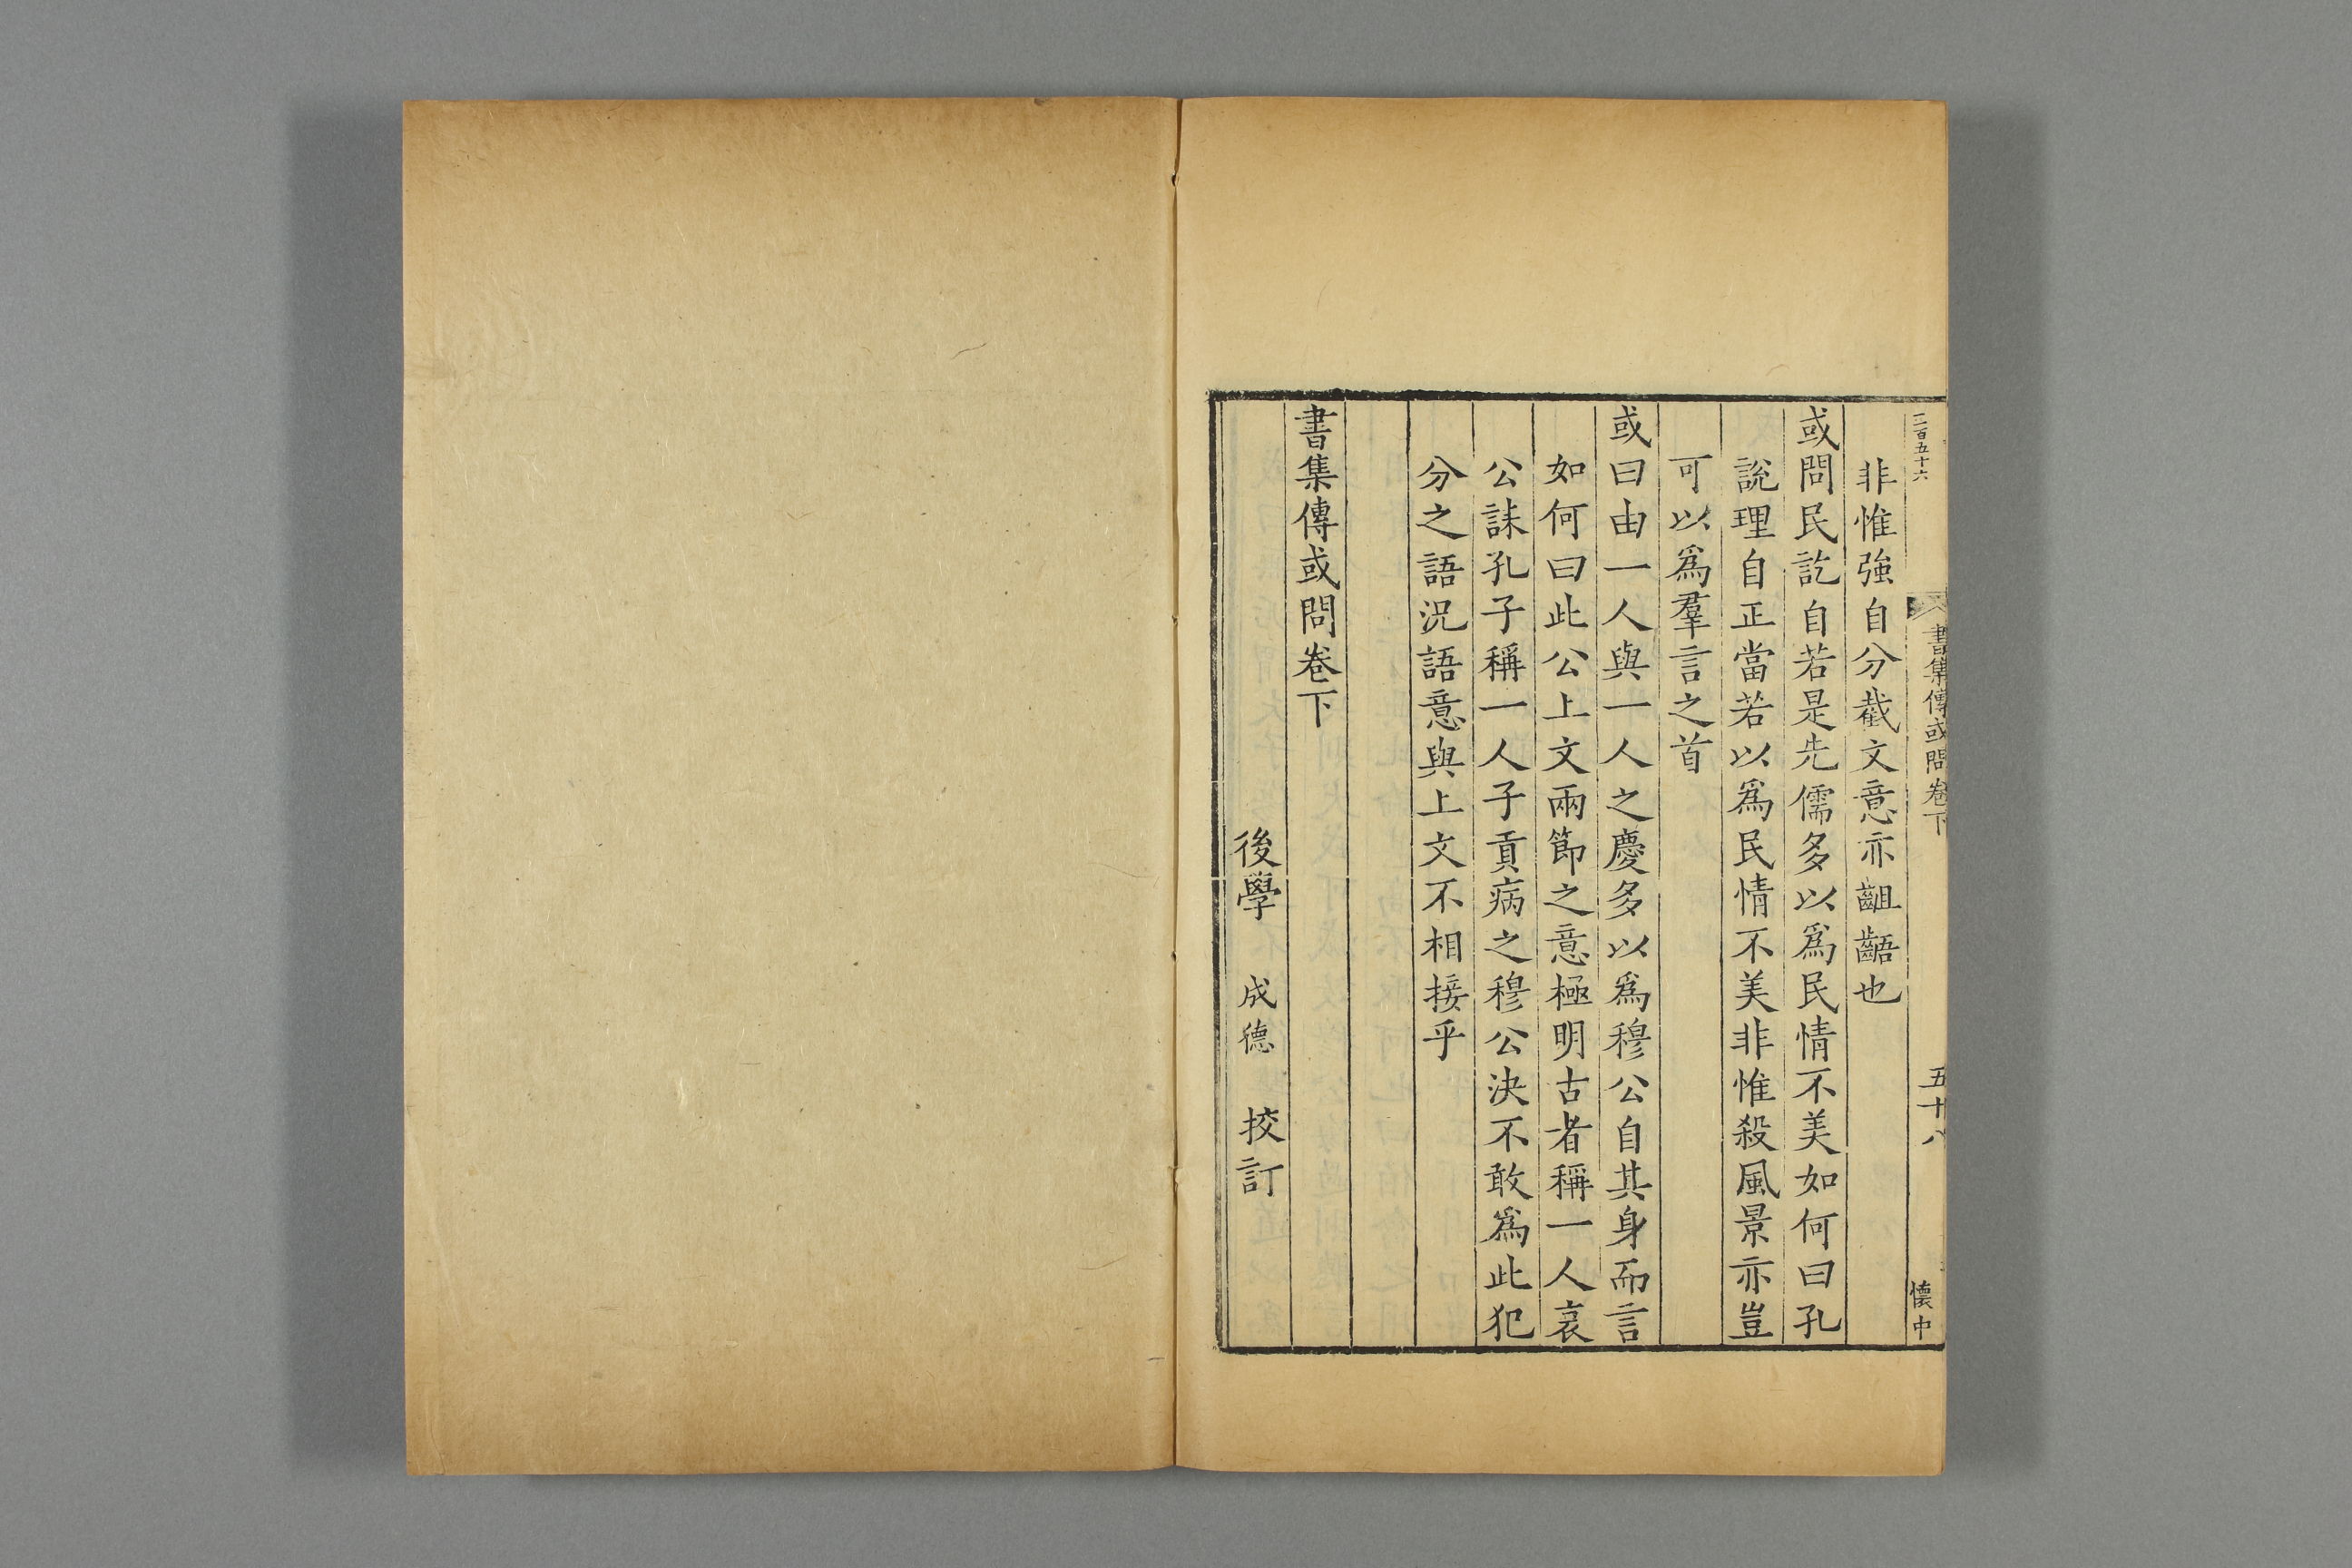 二百五十六
書集傳或問卷下
五十八
懷中
非惟強自分截文意亦齟齬也
或問民訖自若是先儒多以爲民情不美如何曰孔
說理自正當若以爲民情不美非惟殺風景亦豈
可以爲羣言之首
或曰由一人與一人之慶多以爲穆公自其身而言
如何曰此公上文兩節之意極明古者稱一人哀
公誄孔子稱一人子貢病之穆公決不敢爲此犯
分之語況語意與上文不相接乎
書集傳或問卷下
後學 成德 挍訂